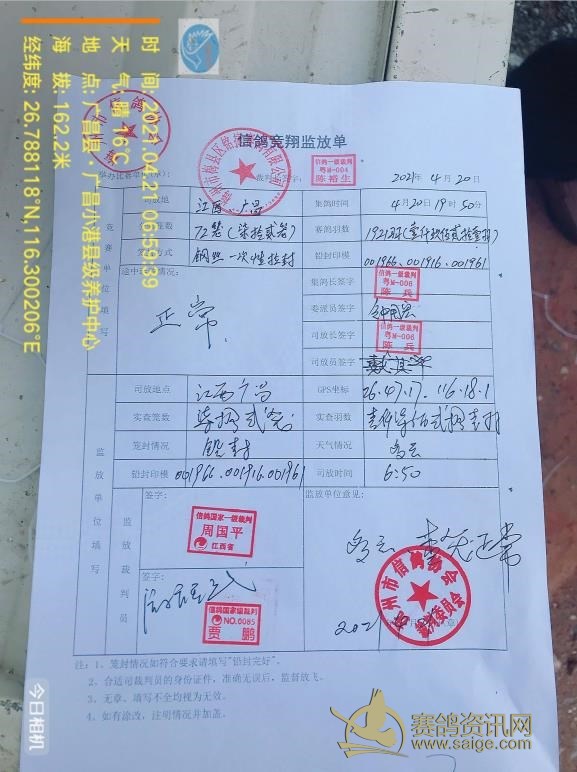 时 间: 2021.04.21 06:54:39
天 气: 晴 16℃
地 点: 广昌县·广昌小港县级养护中心
海 拔: 162.2米
经纬度: 26.788118°N,116.300206°E
信鸽竞翔监放单
信鸽一级裁判
粤M-004
陈裕生
2021年4月20日
司放地
江西 广昌
集鸽时间
4月20日19时50分
72笼(柒拾贰笼)
赛鸽羽数
1921羽
钢丝一次性拉封
铅封印模
001966.001916.001961
途中
情况:
正常
集鸽长签字
信鸽一级裁判
粤M-006
陈兵
委派员签字
司放长签字
信鸽一级裁判
粤M-006
陈兵
司放员签字
竞赛单位填写
司放地点
江西广昌
GPS坐标
26.47.17. 116.18.1
实查笼数
实查羽数
笼封情况
天气情况
多云
铅封印模
001966.001916.001961
司放时间
6:50
监放单位填写
监放裁判员
签字:
信鸽国家一级裁判
周国平
江西省
签字:
信鸽国家级裁判
NO.6085
贾鹏
监放单位意见:
多云 正常
州市信鸽协会
裁判委员会
2021年
注: 1、笼封情况如符合要求请填写"铅封完好"。
2、合适司裁判员的身份证件,准确无误后,监督放飞。
3、无章、填写不全均视为无效。
4、如有涂改,注明情况并加盖。
今日相机
赛鸽资讯网
www.saige.com